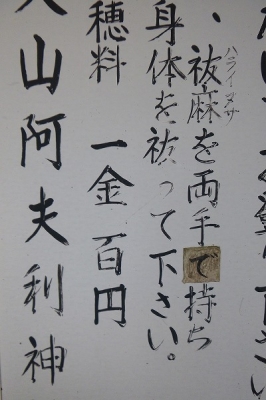 下さい
・祓麻を両手で持ち
ハライヌサ
身体を祓って下さい。
穂料 一金百円
大山阿夫利神